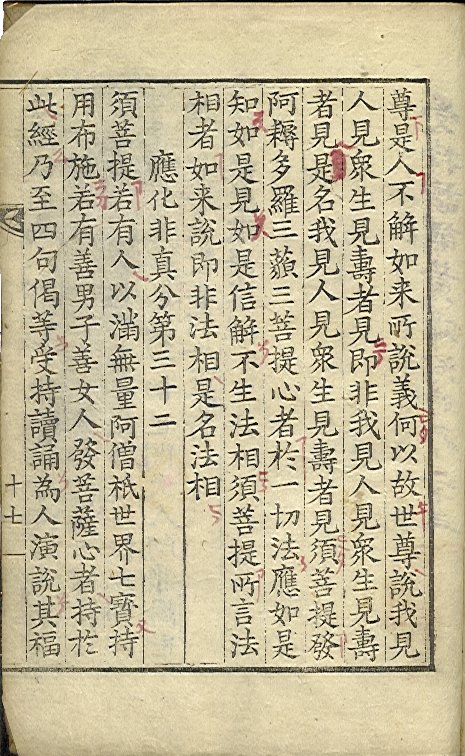 尊是人不解如来所說義何以故世尊說我見
人見衆生見壽者見即非我見人見衆生見壽
者見是名我見人見衆生見壽者見須菩提發
阿耨多羅三藐三菩提心者於一切法應如是
知如是見如是信解不生法相須菩提所言法
相者如来說即非法相是名法相
應化非真分第三十二
須菩提若有人以滿無量阿僧祇世界七寳持
用布施若有善男子善女人發菩薩心者持於
此經乃至四句偈等受持讀誦為人演說其福
十七